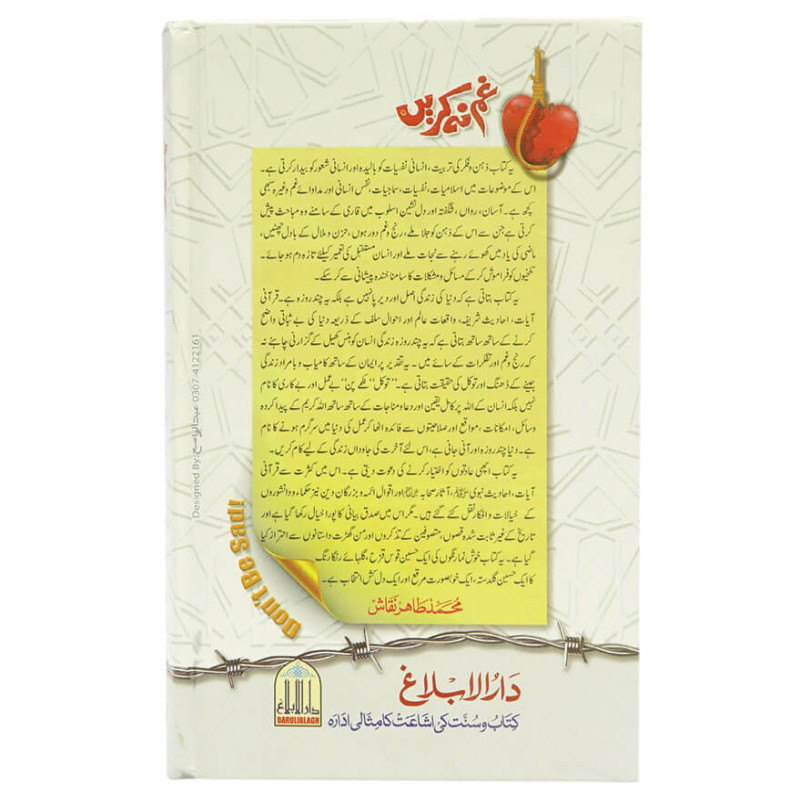 غم نہ کریں
یہ کتاب ذہن و فکر کی تربیت، انسانی نفسیات کو بالیدہ اور انسانی شعور کو بیدار کرتی ہے۔
اس کے موضوعات میں اسلامیات، نفسیات، سماجیات، نفس انسانی اور مداوائے غم وغیرہ سبھی
کچھ ہے۔ آسان، رواں، شگفتہ اور دل نشین اسلوب میں قاری کے سامنے وہ مباحث پیش
کرتی ہے جن سے اس کے ذہن کو جلا ملے، رنج و غم دور ہوں، حزن و ملال کے بادل چھٹیں،
ماضی کی یاد میں کھوئے رہنے سے نجات ملے اور انسان مستقبل کی تعمیر کیلئے تازہ دم ہو جائے۔
تلخیوں کو فراموش کر کے مسائل و مشکلات کا سامنا خندہ پیشانی سے کر سکے۔
یہ کتاب بتاتی ہے کہ دنیا کی زندگی اصل اور دیرپا نہیں ہے بلکہ یہ چند روزہ ہے۔ قرآنی
آیات، احادیث شریفہ، واقعات عالم اور احوال سلف کے ذریعہ دنیا کی بے ثباتی واضح
کرنے کے ساتھ ساتھ بتاتی ہے کہ یہ چند روزہ زندگی انسان کو ہنس کھیل کے گزارنی چاہئے نہ
کہ رنج و غم اور تفکرات کے سائے میں۔ یہ تقدیر پر ایمان کے ساتھ کامیاب و بامراد زندگی
جینے کے ڈھنگ اور توکل کی حقیقت بتاتی ہے۔ "توکل" نکمے پن، بے عمل اور بے کاری کا نام
نہیں بلکہ انسان کے اللہ پر کامل یقین اور دعا و مناجات کے ساتھ ساتھ اللہ کریم کے پیدا کردہ
وسائل، امکانات، مواقع اور صلاحیتوں سے فائدہ اٹھا کر عمل کی دنیا میں سرگرم ہونے کا نام
ہے۔ دنیا چند روزہ اور آنی جانی ہے، اس لئے آخرت کی جاوداں زندگی کے لیے کام کریں۔
یہ کتاب اچھی عادتوں کو اختیار کرنے کی دعوت دیتی ہے۔ اس میں کثرت سے قرآنی
آیات، احادیث نبوی ﷺ، آثار صحابہ اور اقوال ائمہ و بزرگان دین نیز حکماء و دانشوروں
کے خیالات و افکار نقل کئے گئے ہیں۔ مگر اس میں صدق بیانی کا پورا خیال رکھا گیا ہے اور
تاریخ کے غیر ثابت شدہ قصوں، متصوفین کے تذکروں اور من گھڑت داستانوں سے احتراز کیا
گیا ہے۔ یہ کتاب خوش نما رنگوں کی ایک حسین قوس قزح، گلہائے رنگا رنگ
کا ایک حسین گلدستہ، ایک خوبصورت مرقع اور ایک دل کش انتخاب ہے۔
محمد طاہر نقاش
Don't Be Sad!
Designed By: عبدالواسع 0307-4122161
دار الابلاغ
کتاب و سنت کی اشاعت کا مثالی ادارہ
دار الابلاغ
DARULIBLAGH